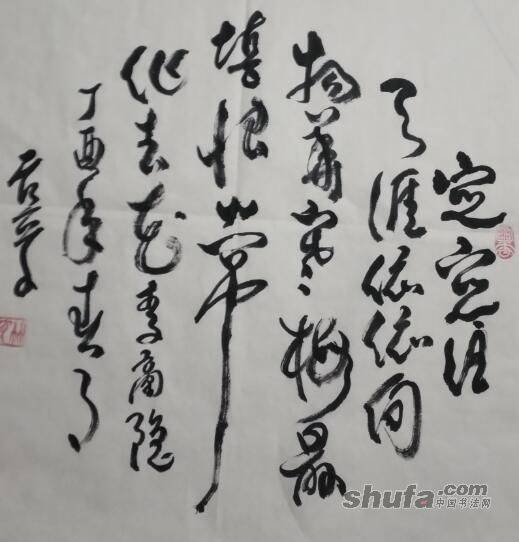 定定住
天涯依依向
物華寒梅最
堪恨常
作去花李商隐
丁酉年春月
shufa.com
中国书法网